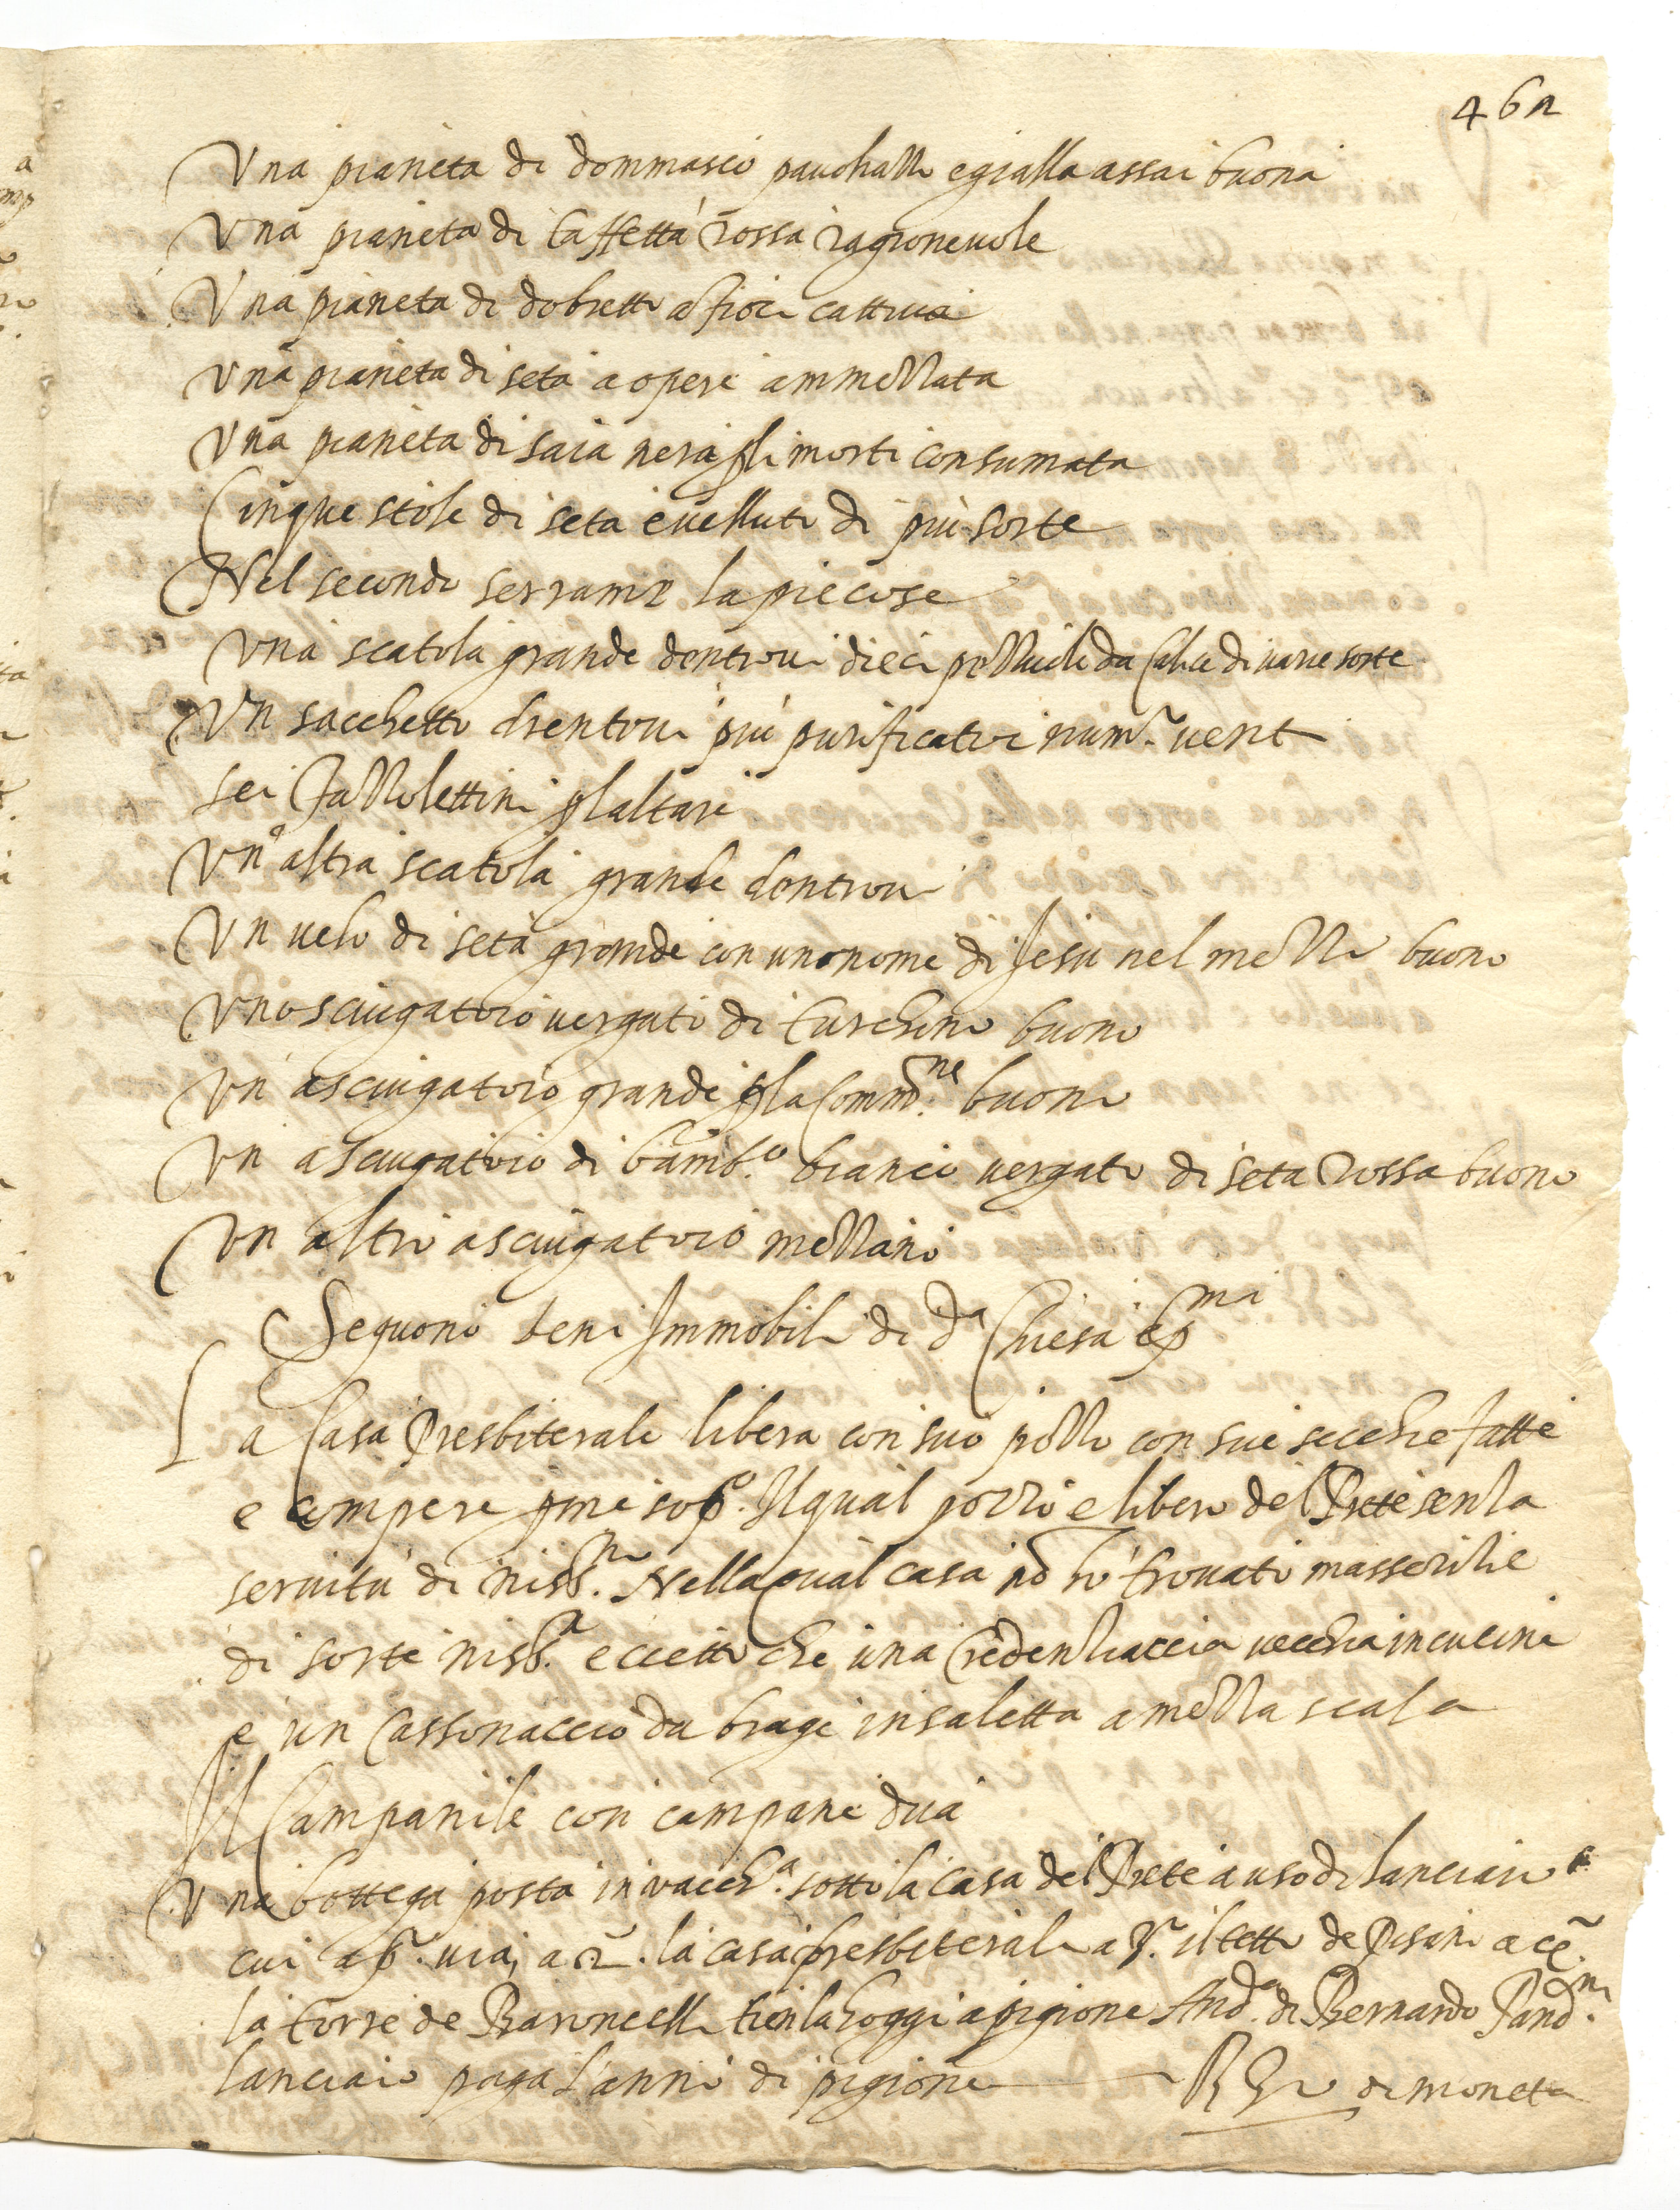 462
Una pianeta di dommasco pauonazzo e gialla assai buona
Una pianeta di taffettà rossa ragioneuole
Una pianeta di dobretto a fiori cattiua
Una pianeta di seta a opere ammezzata
Una pianeta di saia nera p li morti consumata
Cinque stole di seta e uelluto di più sorte
Nel secondo serrame la pie cose
Una scatola grande dentroui dieci pezzuole da Calice di uarie sorte
Un sacchetto drentoui più purificatoi num.º uent
sei Fazzolettini p l altare
Un' altra scatola grande dentroui
Un uelo di seta grande con uno nome di Jesu nel mezzo buono
Uno sciugatoio uergato di turchino buono
Un asciugatoio grande p la Comm.ne buono
Un asciugatoio di bamb.o bianco uergato di seta rossa buono
Un altro asciugatoio mezzano
Seguono beni Immobili di d.a Chiesa e p.mi
La Casa Presbiterale libera con suo pozzo con sue secchie fatte
e compere p me sop.o Il qual pozzo e libero del Prete senza
seruitù di niss.no Nella qual casa nõ hò trouato masserizie
di sorte niss.a eccetto che una Credenziaccia uecchia in cucina
e un Cassonaccio da brage in saletta a mezza scala
Il Campanile con campane dua
Una bottega posta in uacch.a sotto la casa del Prete a uso di lanciaio
cui a p.º uia, a 2.º la casa presbiterale a 3.º il tetto de Pisani a 4.º
la torre de Baroncelli tienla hoggi a pigione And.a di Bernardo Pand.ni
lanciaio paga l'anno di pigione di moneta